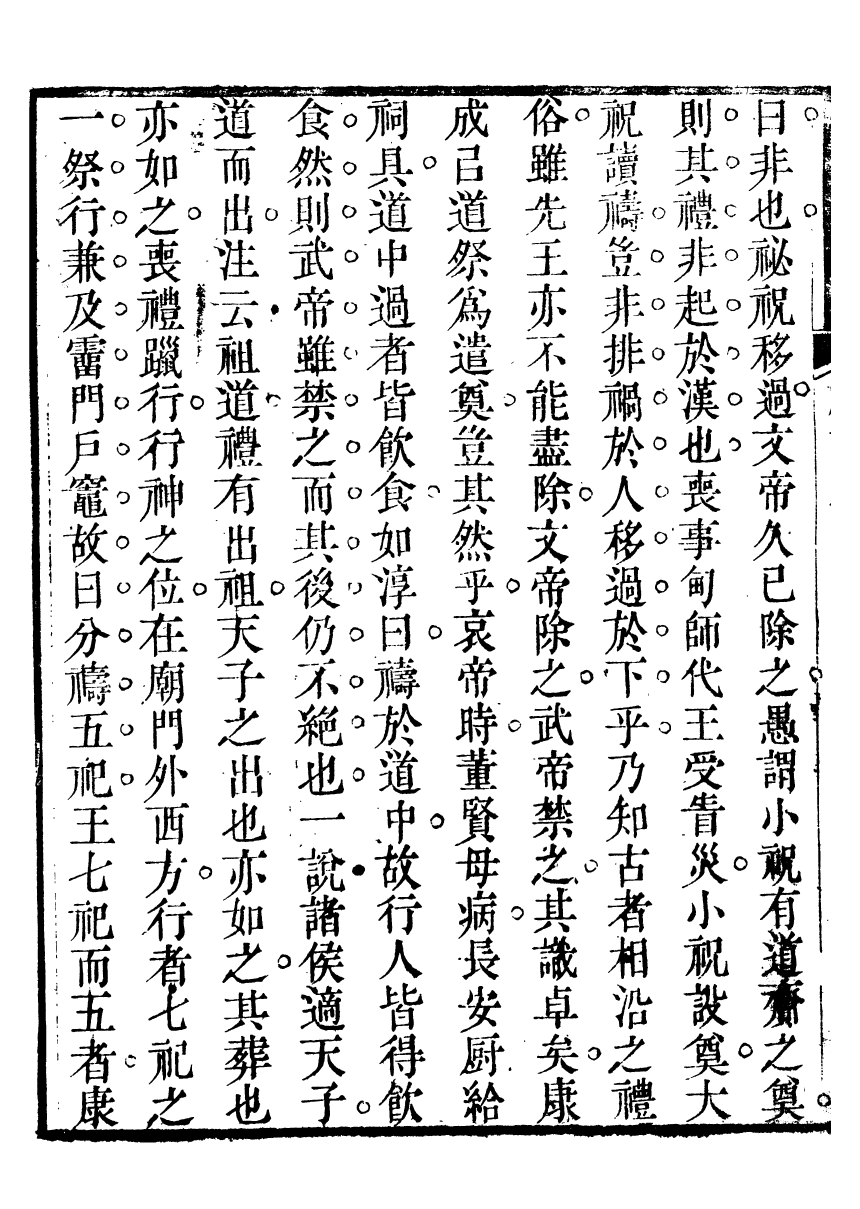 曰非也祕祝移過文帝久已除之愚謂小祝有道齎之奠
則其禮非起於漢也喪事甸師代王受眚災小祝設奠大
祝讀禱豈非排禍於人移過於下乎乃知古者相沿之禮
俗雖先王亦不能盡除文帝除之武帝禁之其識卓矣康
成吕道祭爲遣奠豈其然乎哀帝時董賢母病長安厨給
祠具道中過者皆飮食如淳曰禱於道中故行人皆得飮
食然則武帝雖禁之而其後仍不絶也一說諸侯適天子
道而出注云祖道禮有出祖天子之出也亦如之其葬也
亦如之喪禮躐行行神之位在廟門外西方行者七祀之
一祭行兼及霤門戸竈故曰分禱五祀王七祀而五者康